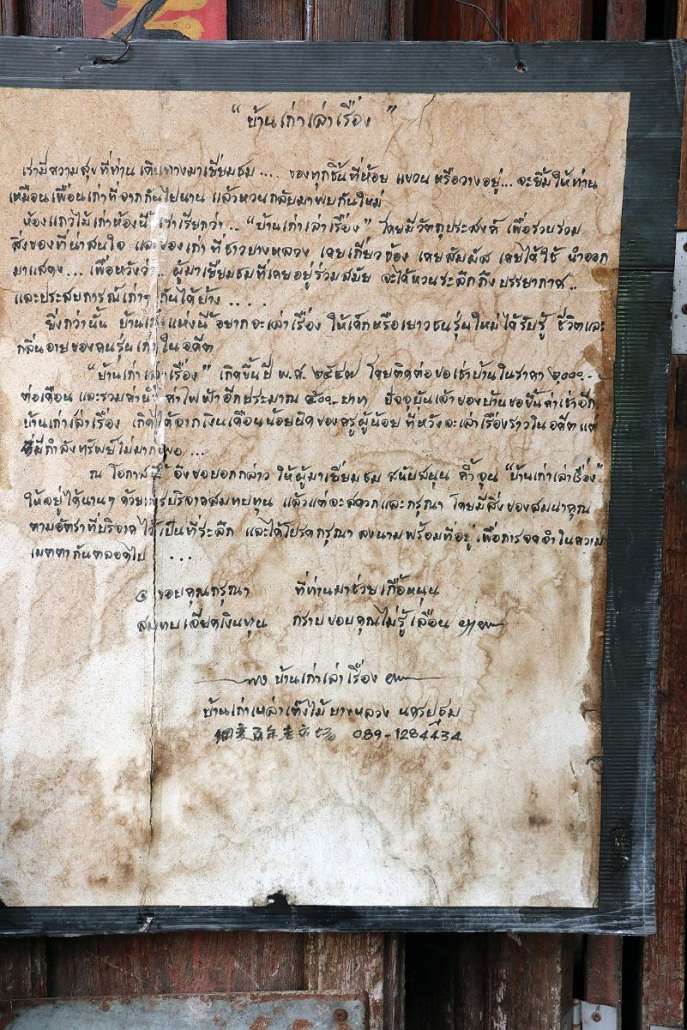 "บ้านเก่าเล่าเรื่อง"
เรามีความสุขที่ท่านเดินทางมาเยี่ยมชม .... ของทุกชิ้นที่ห้อย แขวน หรือวางอยู่... จะยิ้มให้ท่าน
เหมือนเพื่อนเก่าที่จากกันไปนาน แล้วหวนกลับมาพบกันใหม่
ห้องแถวไม้เก่าห้องนี้ เราเรียกว่า .. "บ้านเก่าเล่าเรื่อง" โดยมีวัตถุประสงค์ เพื่อรวบรวม
สิ่งของที่น่าสนใจ และของเก่าที่ชาวบางหลวง เคยเกี่ยวข้อง เคยสัมผัส เคยได้ใช้ นำออก
มาแสดง... เพื่อหวังว่า.. ผู้มาเยี่ยมชมที่เคยอยู่ร่วมสมัย จะได้หวนระลึกถึงบรรยากาศ..
และประสบการณ์เก่าๆ กันได้บ้าง ....
ยิ่งกว่านั้น บ้านเก่าแห่งนี้ อยากจะเล่าเรื่อง ให้เด็กหรือเยาวชนรุ่นใหม่ได้รับรู้ ชีวิตและ
กลิ่นอายของคนรุ่นเก่าในอดีต
"บ้านเก่าเล่าเรื่อง" เกิดขึ้นปี พ.ศ. ๒๕๔๗ โดยติดต่อขอเช่าบ้านในราคา ๑,๐๐๐.-
ต่อเดือน และรวมค่าน้ำ ค่าไฟฟ้าอีกประมาณ ๕๐๐.-บาท ปัจจุบันเจ้าของบ้านขอขึ้นค่าเช่าอีก
บ้านเก่าเล่าเรื่อง เกิดได้จากเงินเดือนน้อยนิดของครูผู้น้อย ที่หวังจะเล่าเรื่องราวในอดีต แต่
ที่มีกำลังทรัพย์ไม่มากพอ...
ณ โอกาสนี้ ต้องขอบอกกล่าว ให้ผู้มาเยี่ยมชม สนับสนุน ค้ำจุน "บ้านเก่าเล่าเรื่อง"
ให้อยู่ได้นานๆ ด้วยการบริจาคสมทบทุน แล้วแต่จะสดวกและกรุณา โดยมีสิ่งของสมนาคุณ
ตามอัตราที่บริจาค ไว้เป็นที่ระลึก และได้โปรดกรุณา ลงนามพร้อมที่อยู่ เพื่อการจดจำในความ
เมตตากันตลอดไป ...
๏ ขอบคุณกรุณา ที่ท่านมาช่วยเกื้อหนุน
สมทบเจียดเงินทุน กราบขอบคุณไม่รู้เลือน ๛
บ้านเก่าเล่าเรื่อง
บ้านเก่าเหล่าเต็งไม้ บางหลวง นครปฐม
089-1284434